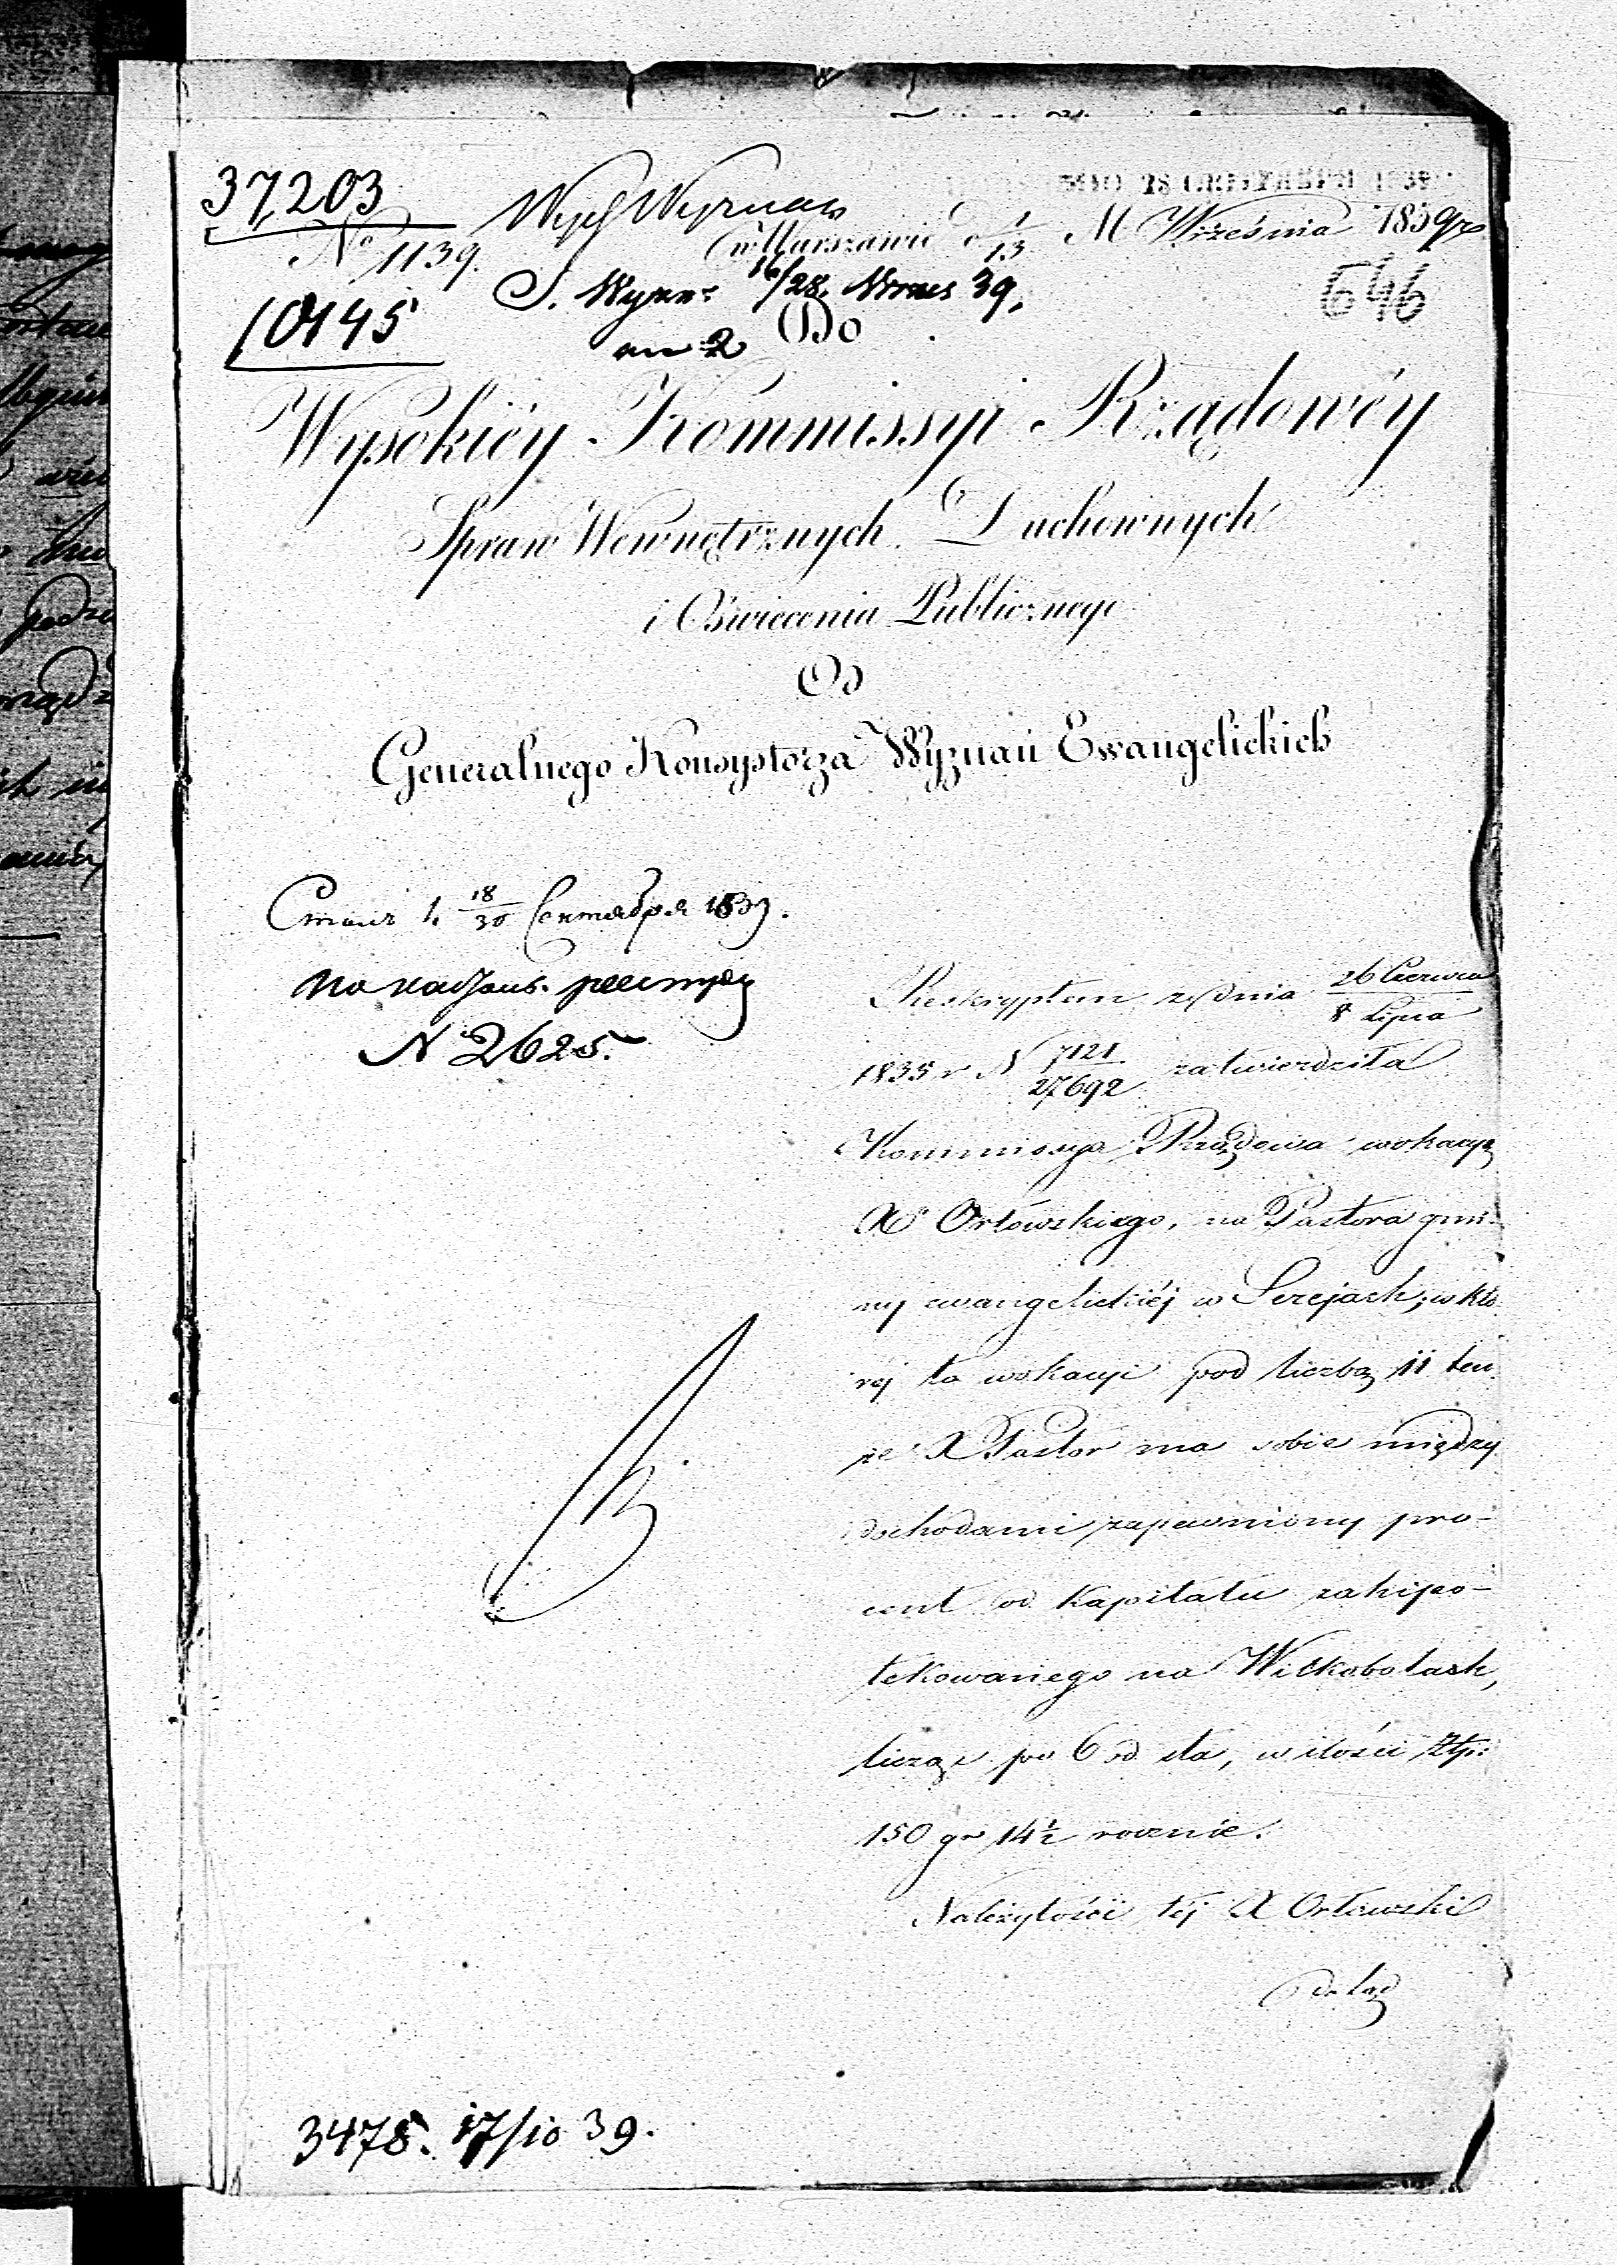 37203
Wydz Wyznań
28 СЕНТЯБРЯ 1839
No 1139.
w Warszawie d 1/13 M Września 1839 r.
10145
16/28. 39.
646
Do
Wysokiéy Kommissyi Rządowéy
Spraw Wewnętrznych Duchownych
i Oświecenia Publicznego
Od
Generalnego Konsystorza Wyznań Ewangelickich
18/30 Сентября 1839.
N 2625.
Reskryptem z dnia 26 Czerwca / 8 Lipca
1835 r N 7121/27692 zatwierdziła
Kommissya Rządowa wokacyą
Xa Orłowskiego, na Pastora gmi-
ny ewangelickiéj w Serejach; w któ-
réj to wokacyi pod liczbą 11 ten-
że X Pastor ma sobie między
dochodami zapewniony pro-
cent od Kapitału zahipo-
tekowanego na Wiłkobołach,
licząc po 6 od sta, w ilości Złp:
150 gr 14½ rocznie.
Należytości téj X Orłowski
dotąd
3478. 17/10 39.